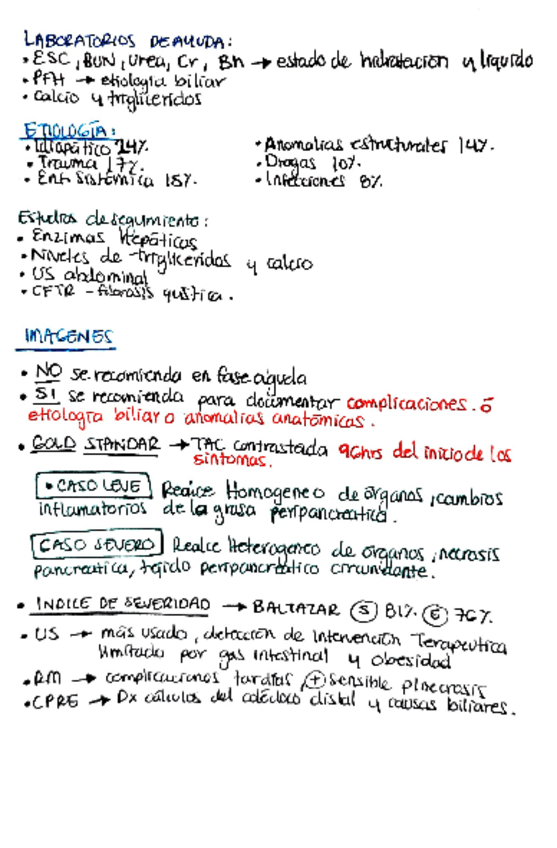 LABORATORIOS DE AYUDA:
• ESC, BUN, Urea, Cr, Bh → estado de hidratación y líquido
• PFH → etiología biliar
• Calcio y trigliceridos
ETIOLOGÍA:
• Idiopático 24%.
• Trauma 17%.
• Enf. Sistémica 15%.
• Anomalias estructurales 14%.
• Drogas 10%.
• Infecciones 8%.
Estudios de seguimiento:
• Enzimas Hepáticas
• Niveles de trigliceridos y calcio
• US abdominal
• CFTR - fibrosis quística.
IMAGENES
• NO se recomienda en fase aguda
• SI se recomienda para documentar complicaciones. ó
etiología biliar o anomalias anatómicas.
• GOLD STANDAR → TAC contrastada 96hrs del inicio de los
síntomas.
• CASO LEVE Realce Homogeneo de órganos, cambios
inflamatorios de la grasa peripancreatica.
CASO SEVERO Realce Heterogeneo de organos, necrosis
pancreatica, tejido peripancreático circundante.
• INDICE DE SEVERIDAD → BALTAZAR (S) 81%. (E) 76%.
• US → más usado, detección de Intervención Terapeutica
limitado por gas intestinal y obesidad
• RM → complicaciones tardías, (+) sensible p/necrosis
• CPRE → Dx cálculos del colédoco distal y causas biliares.